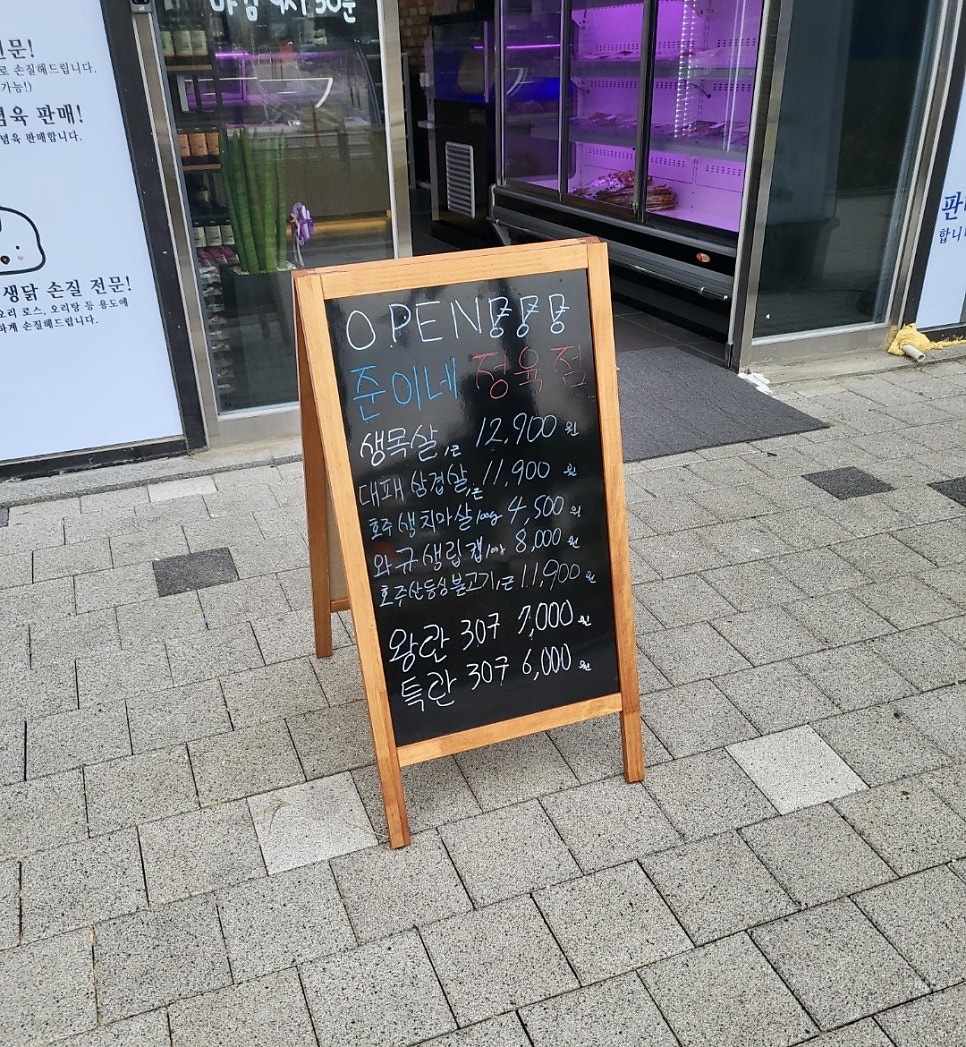 마감 9시 30분
전문!
로 손질해드립니다.
가능!)
념육 판매!
념육 판매합니다.
생닭 손질 전문!
요리 로스, 오리탕 등 용도에
하게 손질해드립니다.
OPEN
준이네 정육점
생목살 1근 12,900원
대패삼겹살 1근 11,900원
호주 생치마살 100g 4,500원
와규생립캡 100g 8,000원
호주산등심불고기 1근 11,900원
왕란 30구 7,000원
특란 30구 6,000원
판
합니